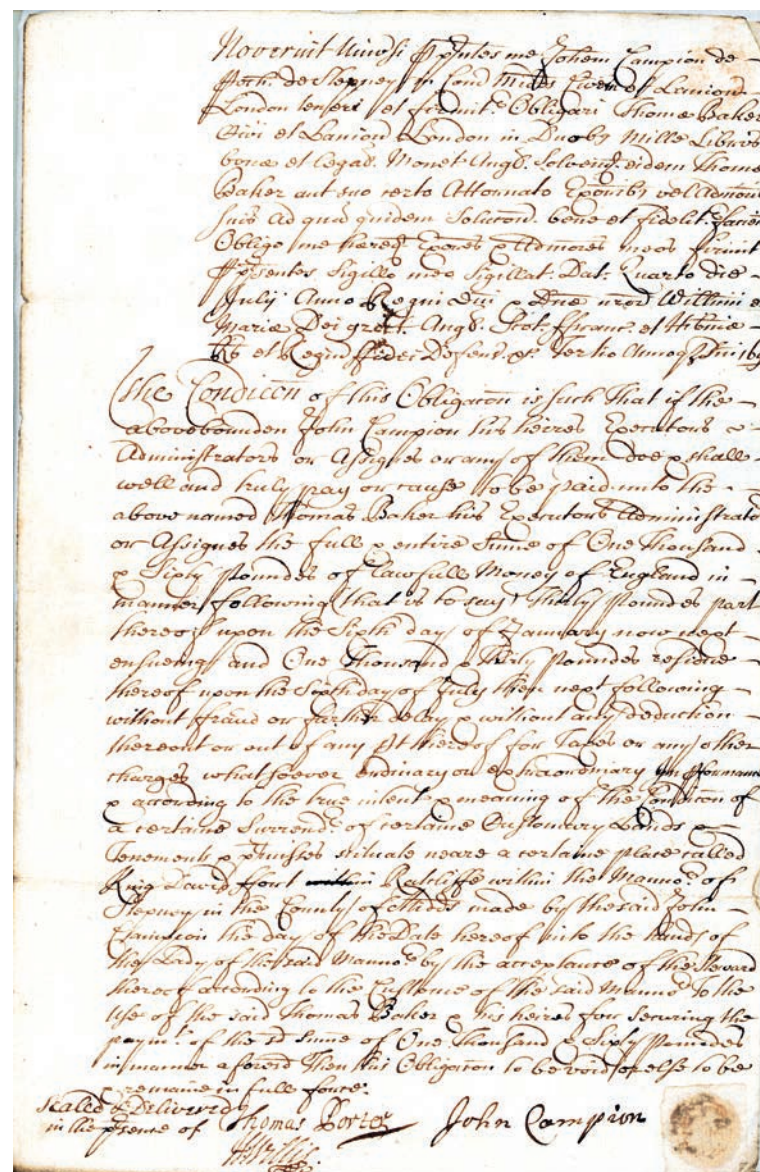 Noverint Univsi p psentes me Johem Campion de
Poch de Stepney in Com Midds Civem et Lanion
London teneri et firmit Obligari Thome Baker
Civi et Lanion London in Duoby Mille Libris
bone et legat Monet Angl. Solvend eidem Thome
Baker aut suo certo Attornato Exoribs vel Admõribs
suis Ad qua quidem Solucon bene et fidelit faciend
Obligo me hered Exores & Admores meos firmit
p psentes Sigillo meo Sigillat. Dat. Quarto die
July Anno Regni Dni & Dne nror Willimi et
Marie Dei grat. Angl. Scot. ffranc. et Hibnie
Rs et Regine ffidei Defens. &c. Tertio Annoq Dni 169
The Condicon of this Obligacon is such That if the
abovebounden John Campion his heires Executors or
Administrators or Assignes or any of them doe & shall
well and truly pay or cause to be paid unto the
above named Thomas Baker his Executors Administrators
or Assignes the full & entire Sume of One Thousand
& Sixty Poundes of lawfull Money of England in
manner following that is to say Thirty Poundes part
thereof upon the Sixth day of January now next
ensueing and One Thousand & Thirty Poundes residue
thereof upon the Sixth day of July then next following
without fraud or further delay & without any deduction
thereout or out of any pt thereof for Taxes or any other
charges whatsoever ordinary or extraordinary In pformance
& according to the true intent & meaning of the Condicon of
a certaine Surrendr of certaine Customary Lands &
Tenements & pmisses scituate neare a certaine place called
King David ffort Ratcliffe within the Mannor of
Stepney in the County of Midds made by the said John
Campion the day of the Date hereof into the hands of
the Lady of the said Mannor by the acceptance of the Steward
thereof according to the Custome of the said Mannor To the
use of the said Thomas Baker & his heires for securing the
paymt. of the sd sume of One Thousand & Sixty Poundes
in manner aforesd Then this Obligacon to be void or else to be
& remaine in full force.
Sealed & Delivered
in the psence of
Thomas Porter
John Campion
Willis.